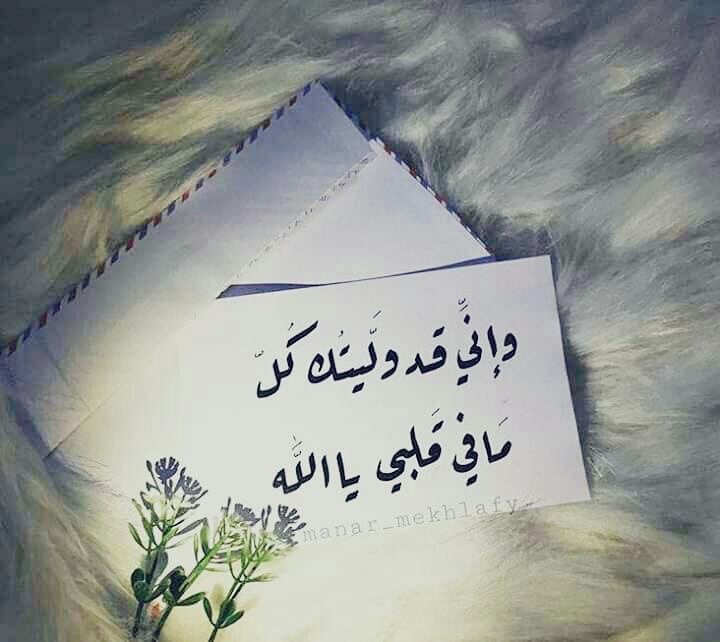 وإنِّي قد ولَّيتُك كُلّ
مَافي قَلبي ياالله
manar_mekhlafy_